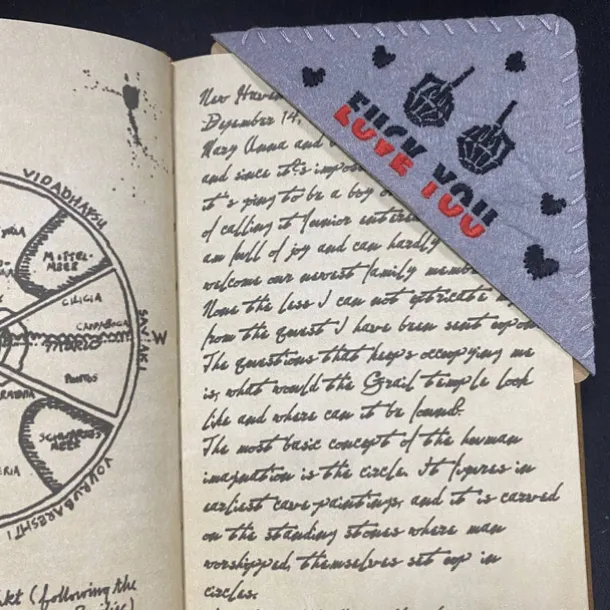 VIDADHAFSU
MITTEL-
MEER
CILICIA
W
PONTOS
SCHWARZES
MEER
VOURUBARESHTI
(following the
FUCK YOU
LOVE YOU
New Haven
December 14,
Mary Anna and
and since it's
it's going to be a boy
of calling it Junior
am full of joy and can hardly
welcome our newest family
None the less I can not extricate
from the quest I have been sent upon
The questions that keeps occupying me
is, what would the Grail temple look
like and where can it be found?
The most basic concept of the human
imagination is the circle. It figures in
earliest cave paintings, and it is carved
on the standing stones where man
worshipped, themselves set up in
circles.